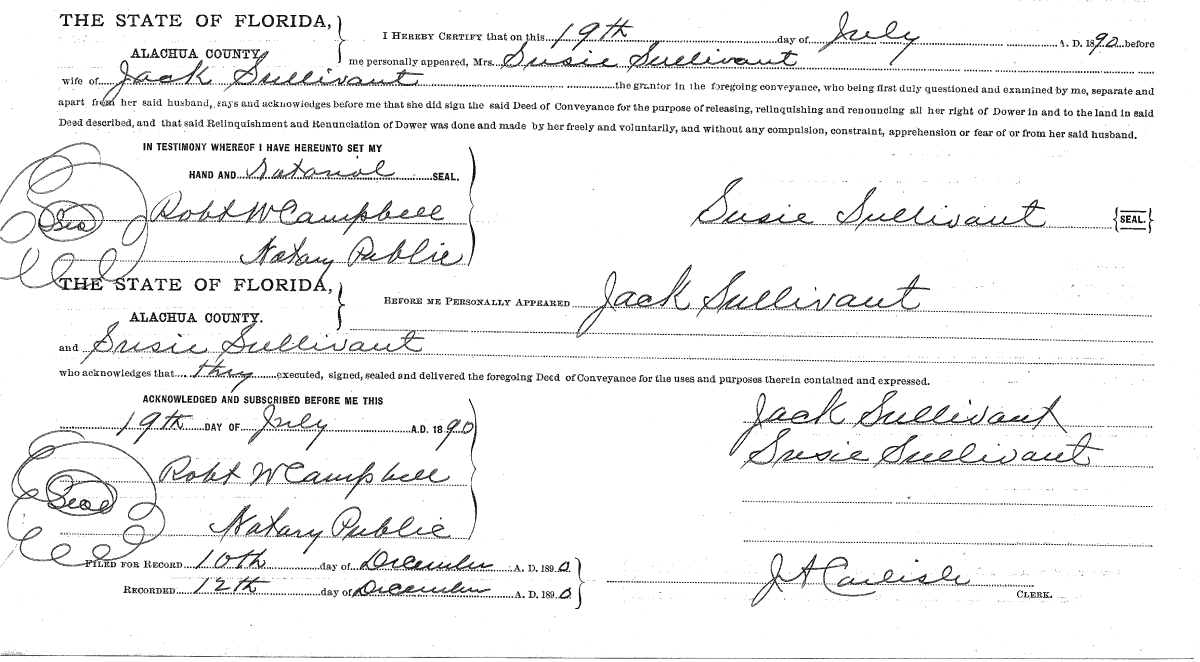 THE STATE OF FLORIDA,
ALACHUA COUNTY.
I HEREBY CERTIFY that on this 19th day of July A. D. 1890 before
me personally appeared, Mrs. Susie Sullivant
wife of Jack Sullivant the grantor in the foregoing conveyance, who being first duly questioned and examined by me, separate and
apart from her said husband, says and acknowledges before me that she did sign the said Deed of Conveyance for the purpose of releasing, relinquishing and renouncing all her right of Dower in and to the land in said
Deed described, and that said Relinquishment and Renunciation of Dower was done and made by her freely and voluntarily, and without any compulsion, constraint, apprehension or fear of or from her said husband.
IN TESTIMONY WHEREOF I HAVE HEREUNTO SET MY
HAND AND Notarial SEAL.
Seal
Robt W Campbell
Susie Sullivant {SEAL.}
Notary Public
THE STATE OF FLORIDA,
ALACHUA COUNTY.
BEFORE ME PERSONALLY APPEARED Jack Sullivant
and Susie Sullivant
who acknowledges that they executed, signed, sealed and delivered the foregoing Deed of Conveyance for the uses and purposes therein contained and expressed.
ACKNOWLEDGED AND SUBSCRIBED BEFORE ME THIS
19th DAY OF July A.D. 1890
Jack Sullivant
Susie Sullivant
Seal
Robt W Campbell
Notary Public
FILED FOR RECORD 10th day of December A. D. 1890
RECORDED 12th day of December A. D. 1890
J A Carlisle
CLERK.